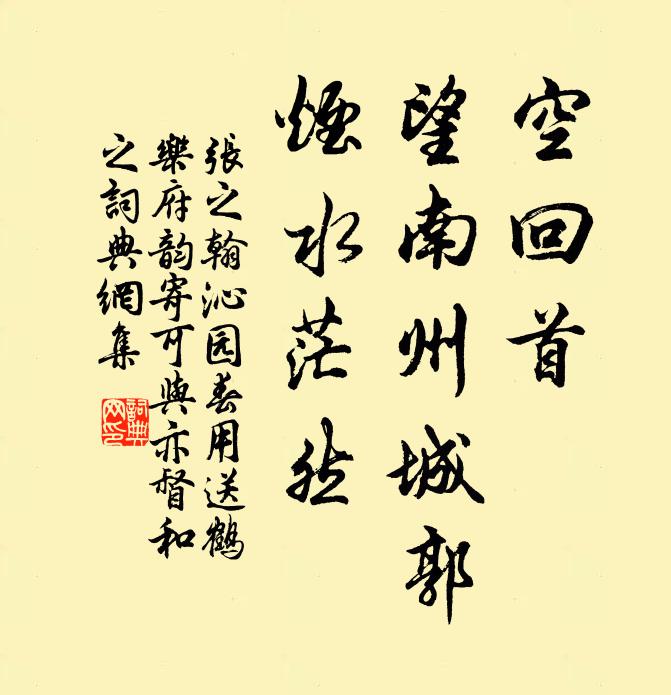 空回首
望南州城郭
煙水茫然
張之翰沁园春用送鶴
樂府韵寄可與亦督和
之詞典網集
詞典
网印